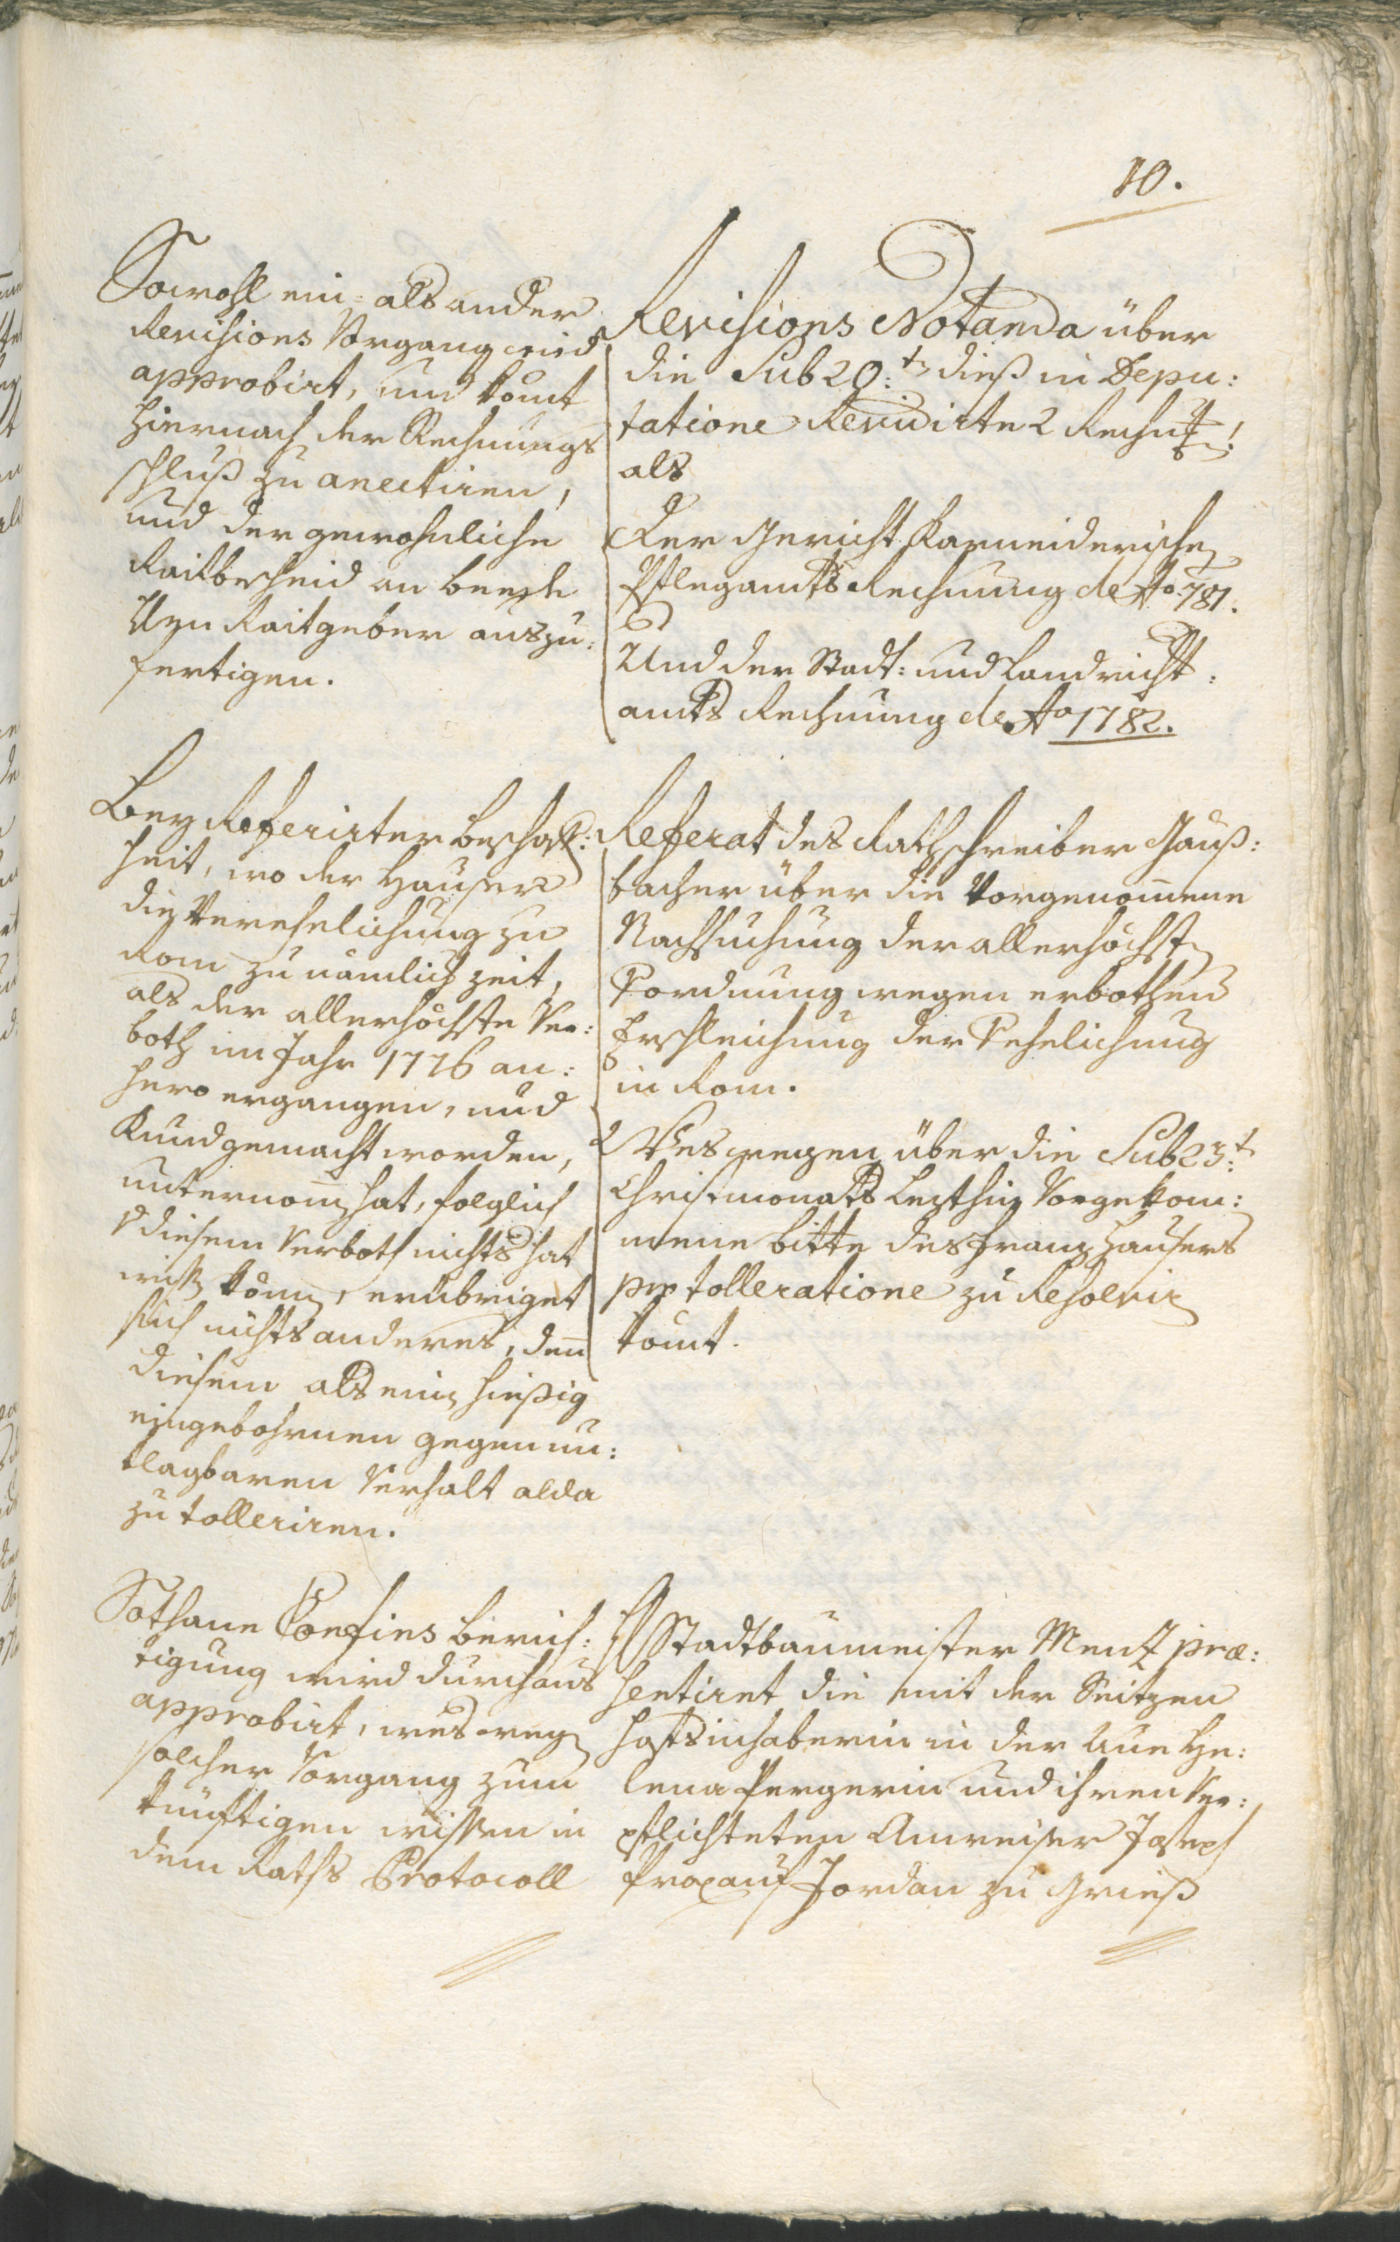 10.
Sowohl ein- als ander
Revisions Vorgang wird
approbirt, und komt
hiernach der Rechnungs
schluß zu anectiren,
und der gewohnliche
Raitbescheid an beede
Hzn Raitgeber auszu:
fertigen.
Revisions Notanda über
die Sub 20:t dieß in Depu:
tatione Revidirte 2 Rechn:
als
Der Gericht Karneiderischen
Pflegamts Rechnung de Ao 781.
Und der Stadt: und Landricht:
amts Rechnung de Ao 1782.
Bey Referirter beschaff:
heit, wo der Hauser
die Verehelichung zu
Rom zu nämlich zeit,
als der allerhöchste Ver:
both im Jahr 1776 an:
hero ergangen, und
Kundgemacht worden,
unternom̄ hat, folglich
v diesem Verboth nichts hat
wißen könn, erübriget
sich nichts anderes, den̄
diesem als ein hießig
eingebohrnen gegen un:
klagbaren Verhalt alda
zu tolleriren.
Referat des Rathschreiber Gauß:
bacher über die Vorgenom̄ene
Nachsuchung der allerhöchsten
Vordnung wegen erbothener
Erschleichung der Vehelichung
in Rom.
Weswegen über die Sub 23:t
Christmonats Lezthin Vorgekom:
mene bitte des Franz Hausers
pro tolleratione zu Resolvir
komt.
Sothane Confins berich:
tigung wird durchaus
approbirt, weswegen
solcher Vorgang zum
künftigen wissen in
dem Raths Protocoll
H Stadtbaumeister Menz præ:
sentiret die mit der Seitzen
hofsinhaberin in der Aue He:
lena Pergerin und ihren Ver:
pflichteten Anweiser Joseph
Propauf Jordan zu Grieß